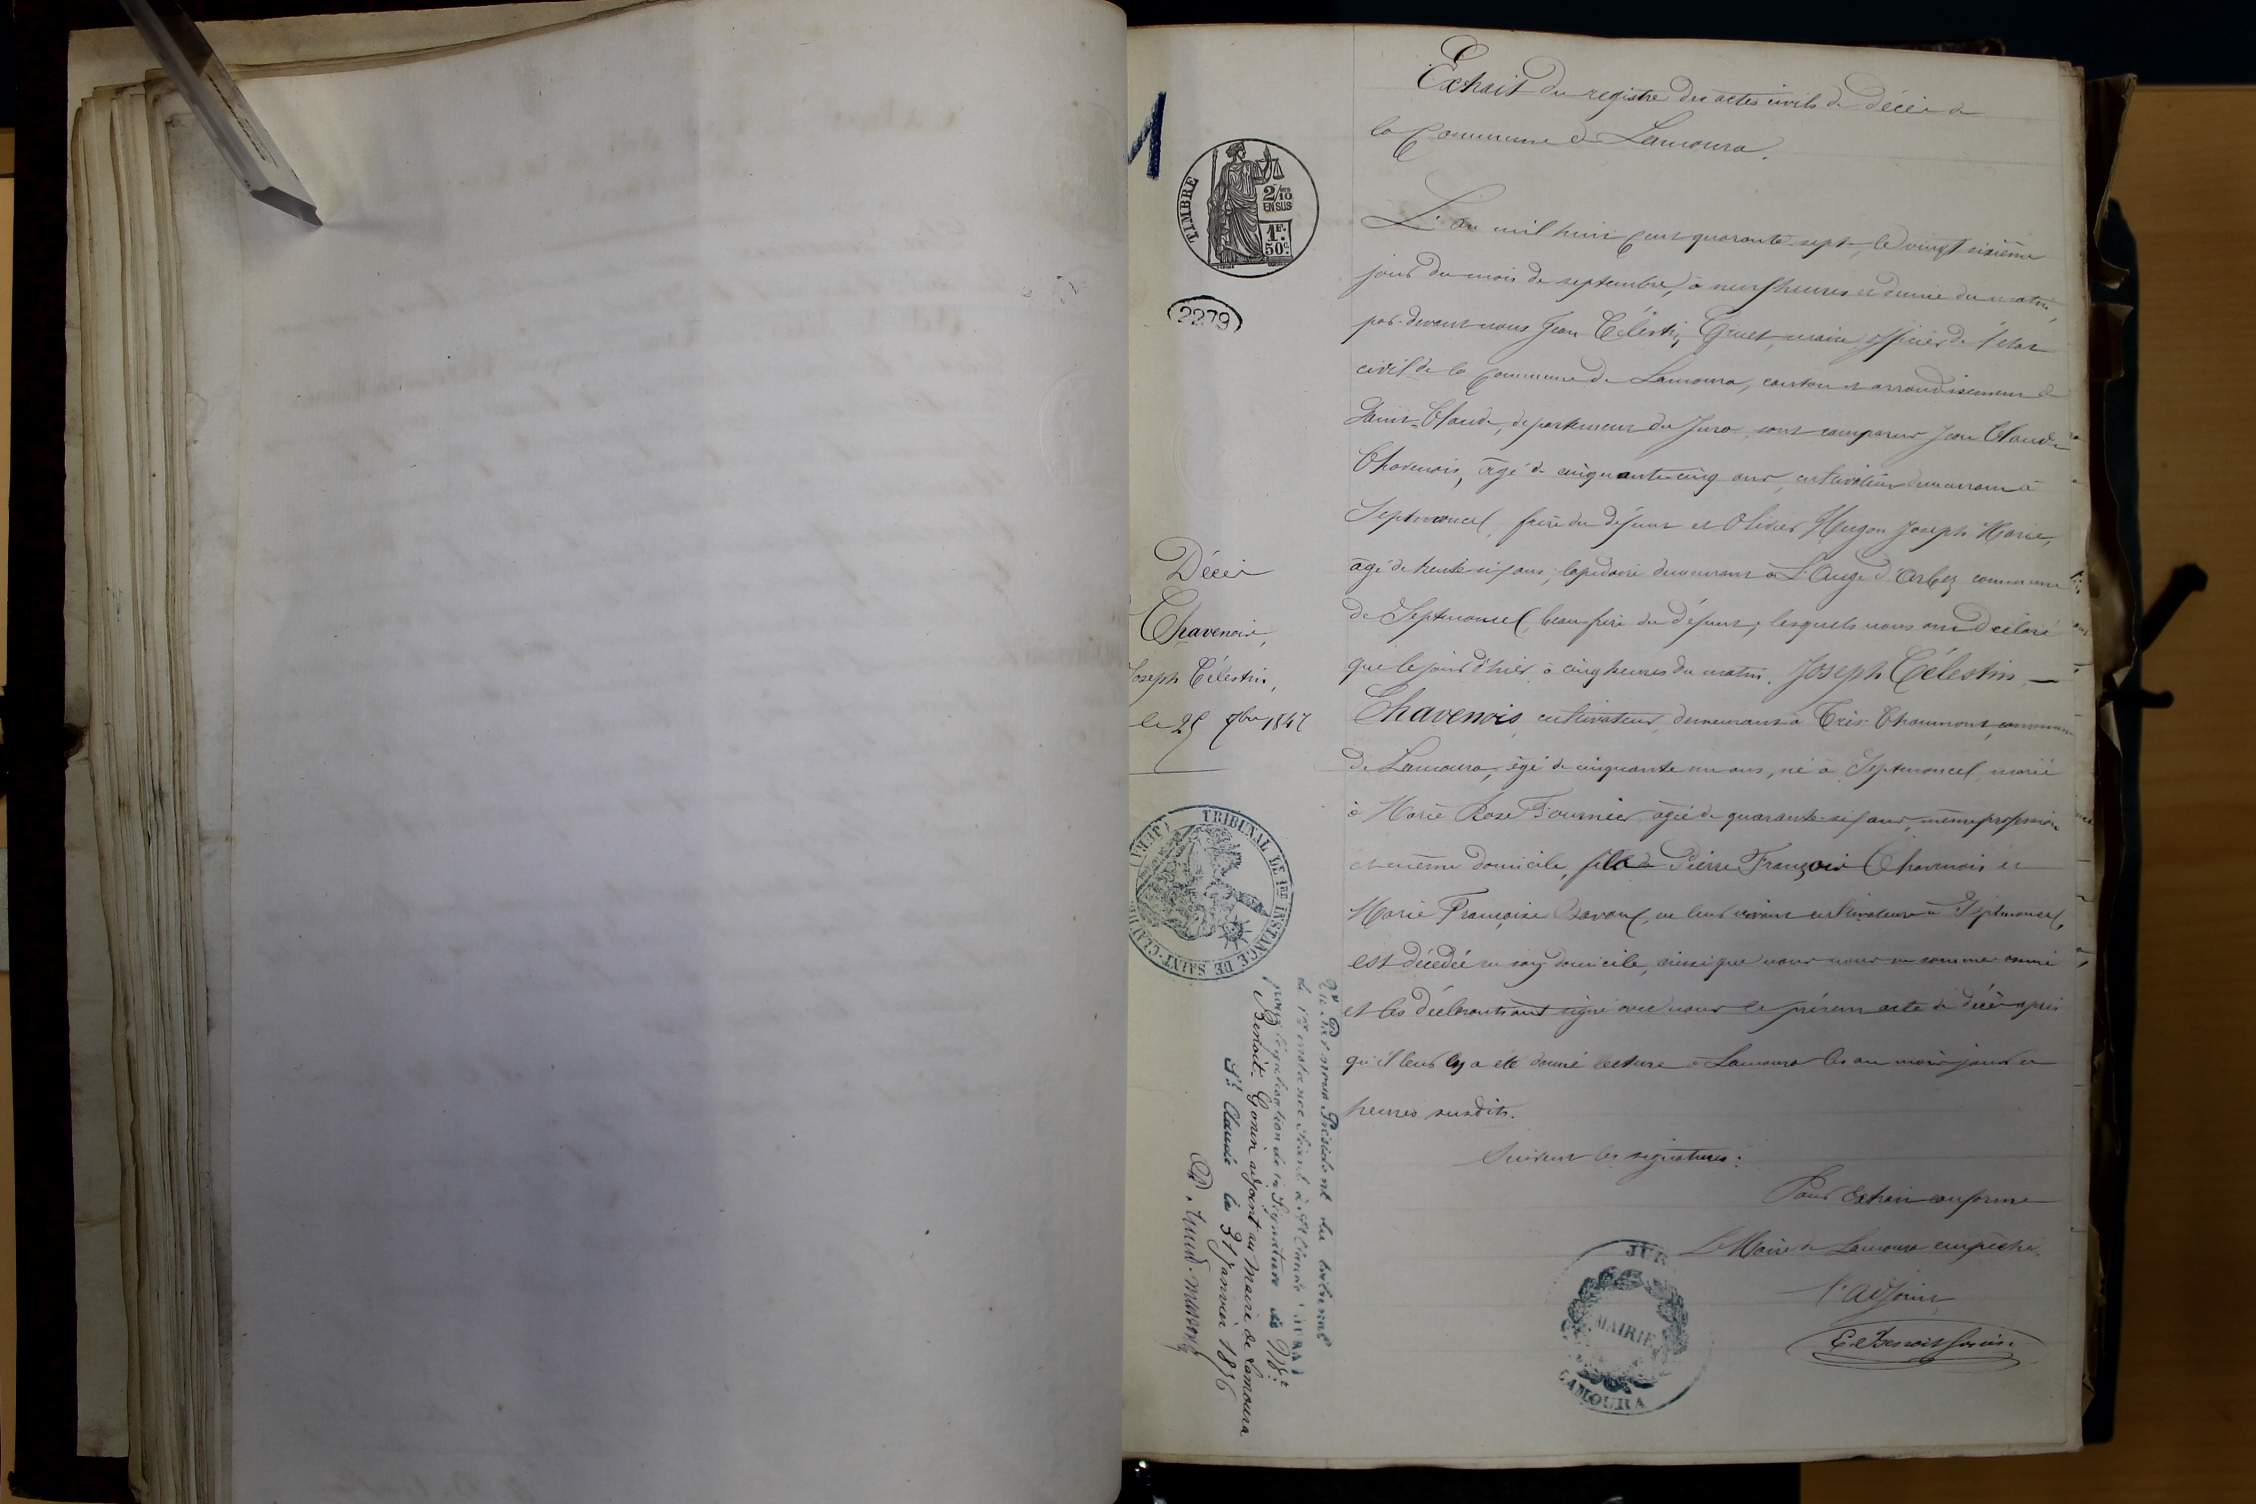 Extrait du registre des actes civils de décès de
la Commune de Lamoura.
TIMBRE
2/10 EN SUS
1 F. 50 c.
2279
L'an mil huit cent quarante-sept, le vingt sixième
jour du mois de septembre, à neuf heures et demie du matin,
par-devant nous Jean Célestin Gruet, maire, officier de l'état
civil de la Commune de Lamoura, canton et arrondissement de
Saint-Claude, département du Jura, sont comparus Jean Claude
Chavenois, âgé de cinquante-cinq ans, cultivateur demeurant à
Septmoncel, frère du défunt et Olivier Hugon Joseph Marie,
âgé de trente six ans, lapidaire demeurant à L'Auge d'Arbez commune
de Septmoncel, beau frère du défunt, lesquels nous ont déclaré
que le jour d'hier, à cinq heures du matin, Joseph Célestin —
Chavenois, cultivateur, demeurant à Très-Chaumont, commune
de Lamoura, âgé de cinquante un ans, né à Septmoncel, marié
à Marie Rose Fournier, âgée de quarante-six ans, même profession
et même domicile, fils de Pierre François Chavenois et
Marie Françoise Bavoux, en leur vivant cultivateurs à Septmoncel,
est décédé en son domicile, ainsi que nous nous en sommes assuré
et les déclarants ont signé avec nous le présent acte de décès après
qu'il leur en a été donné lecture à Lamoura les an mois jour et
heures susdits.
Suivent les signatures:
Pour Extrait conforme
Le Maire de Lamoura empêché,
l'adjoint
E. Benoit Gonin
JURA
MAIRIE
LAMOURA
Décès
Chavenois,
Joseph Célestin,
le 25 7bre 1847
TRIBUNAL DE 1RE INSTANCE DE SAINT-CLAUDE (JURA)
Vu Par nous Président du tribunal
de 1re instance séant à St Claude (JURA)
pour légalisation de la Signature de Mr
Benoit-Gonin adjoint au Maire de Lamoura
St Claude le 31 Janvier 1886